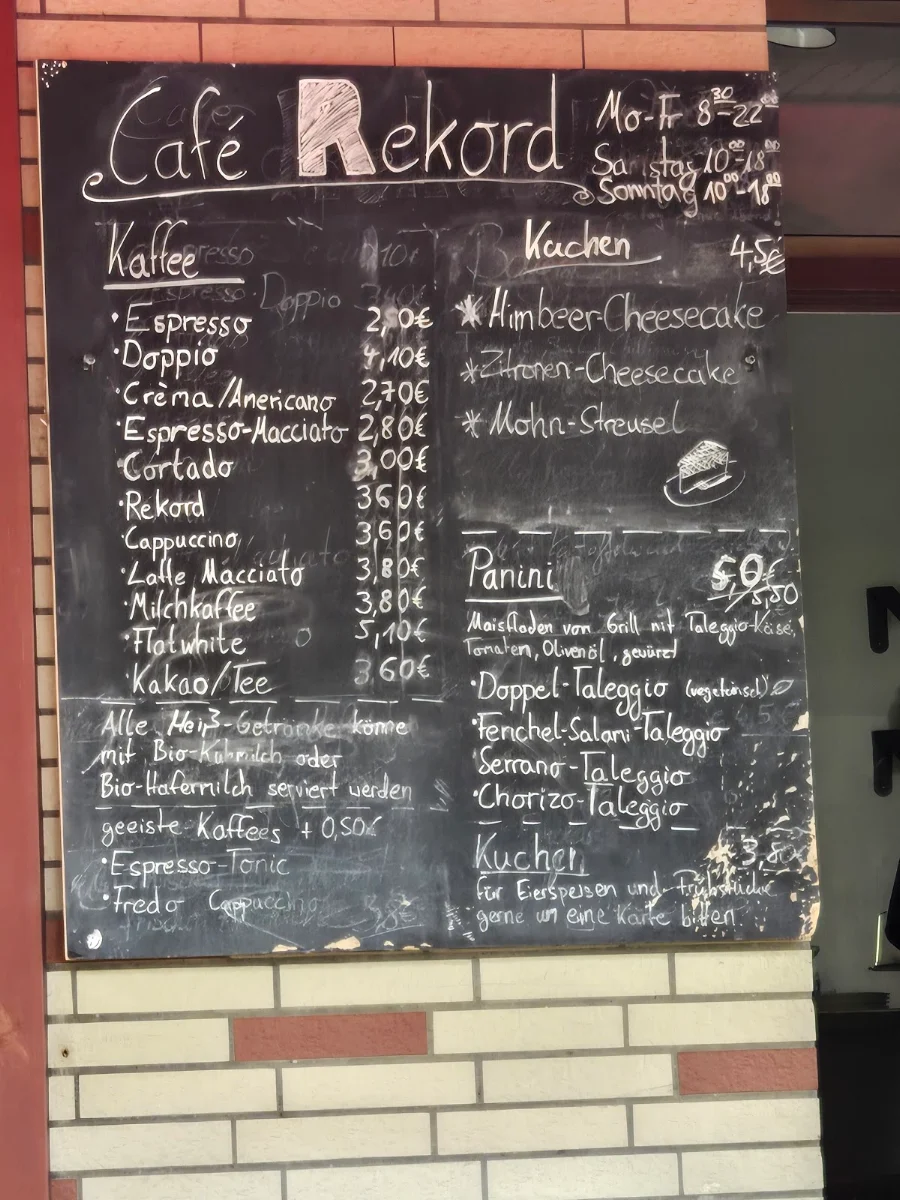 Café Rekord
Mo-Fr 8³⁰-22⁰⁰
Samstag 10⁰⁰-18⁰⁰
Sonntag 10⁰⁰-18⁰⁰
Kaffee
· Espresso
· Doppio 4,10€
· Crèma/Americano 2,70€
· Espresso-Macciato 2,80€
· Cortado 3,00€
· Rekord 3 60€
· Cappuccino 3,60€
· Latte Macciato 3,80€
· Milchkaffee 3,80€
· Flatwhite 5,10€
· Kakao/Tee 3 60€
Alle Heiß-Getränke könne
mit Bio-Kuhmilch oder
Bio-Hafermilch serviert werden
geeiste Kaffees + 0,50€
· Espresso-Tonic
· Fredo Cappuccino
Kuchen 4,5€
* Himbeer-Cheesecake
* Zitronen-Cheesecake
* Mohn-Streusel
Panini 5,50
Maisfladen von Grill mit Taleggio-Käse,
Tomaten, Olivenöl, gewürzt
· Doppel-Taleggio
· Fenchel-Salami-Taleggio
· Serrano-Taleggio
· Chorizo-Taleggio
Kuchen
für Eierspeisen und Frühstücke
gerne um eine Karte bitten